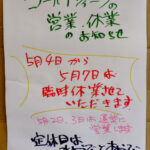 ゴールデンウィークの
営業、休業
のお知らせ
5月4日から
5月7日は
臨時休業させて
いただきます
5月2日、3日は通常に
営業します
定休日は